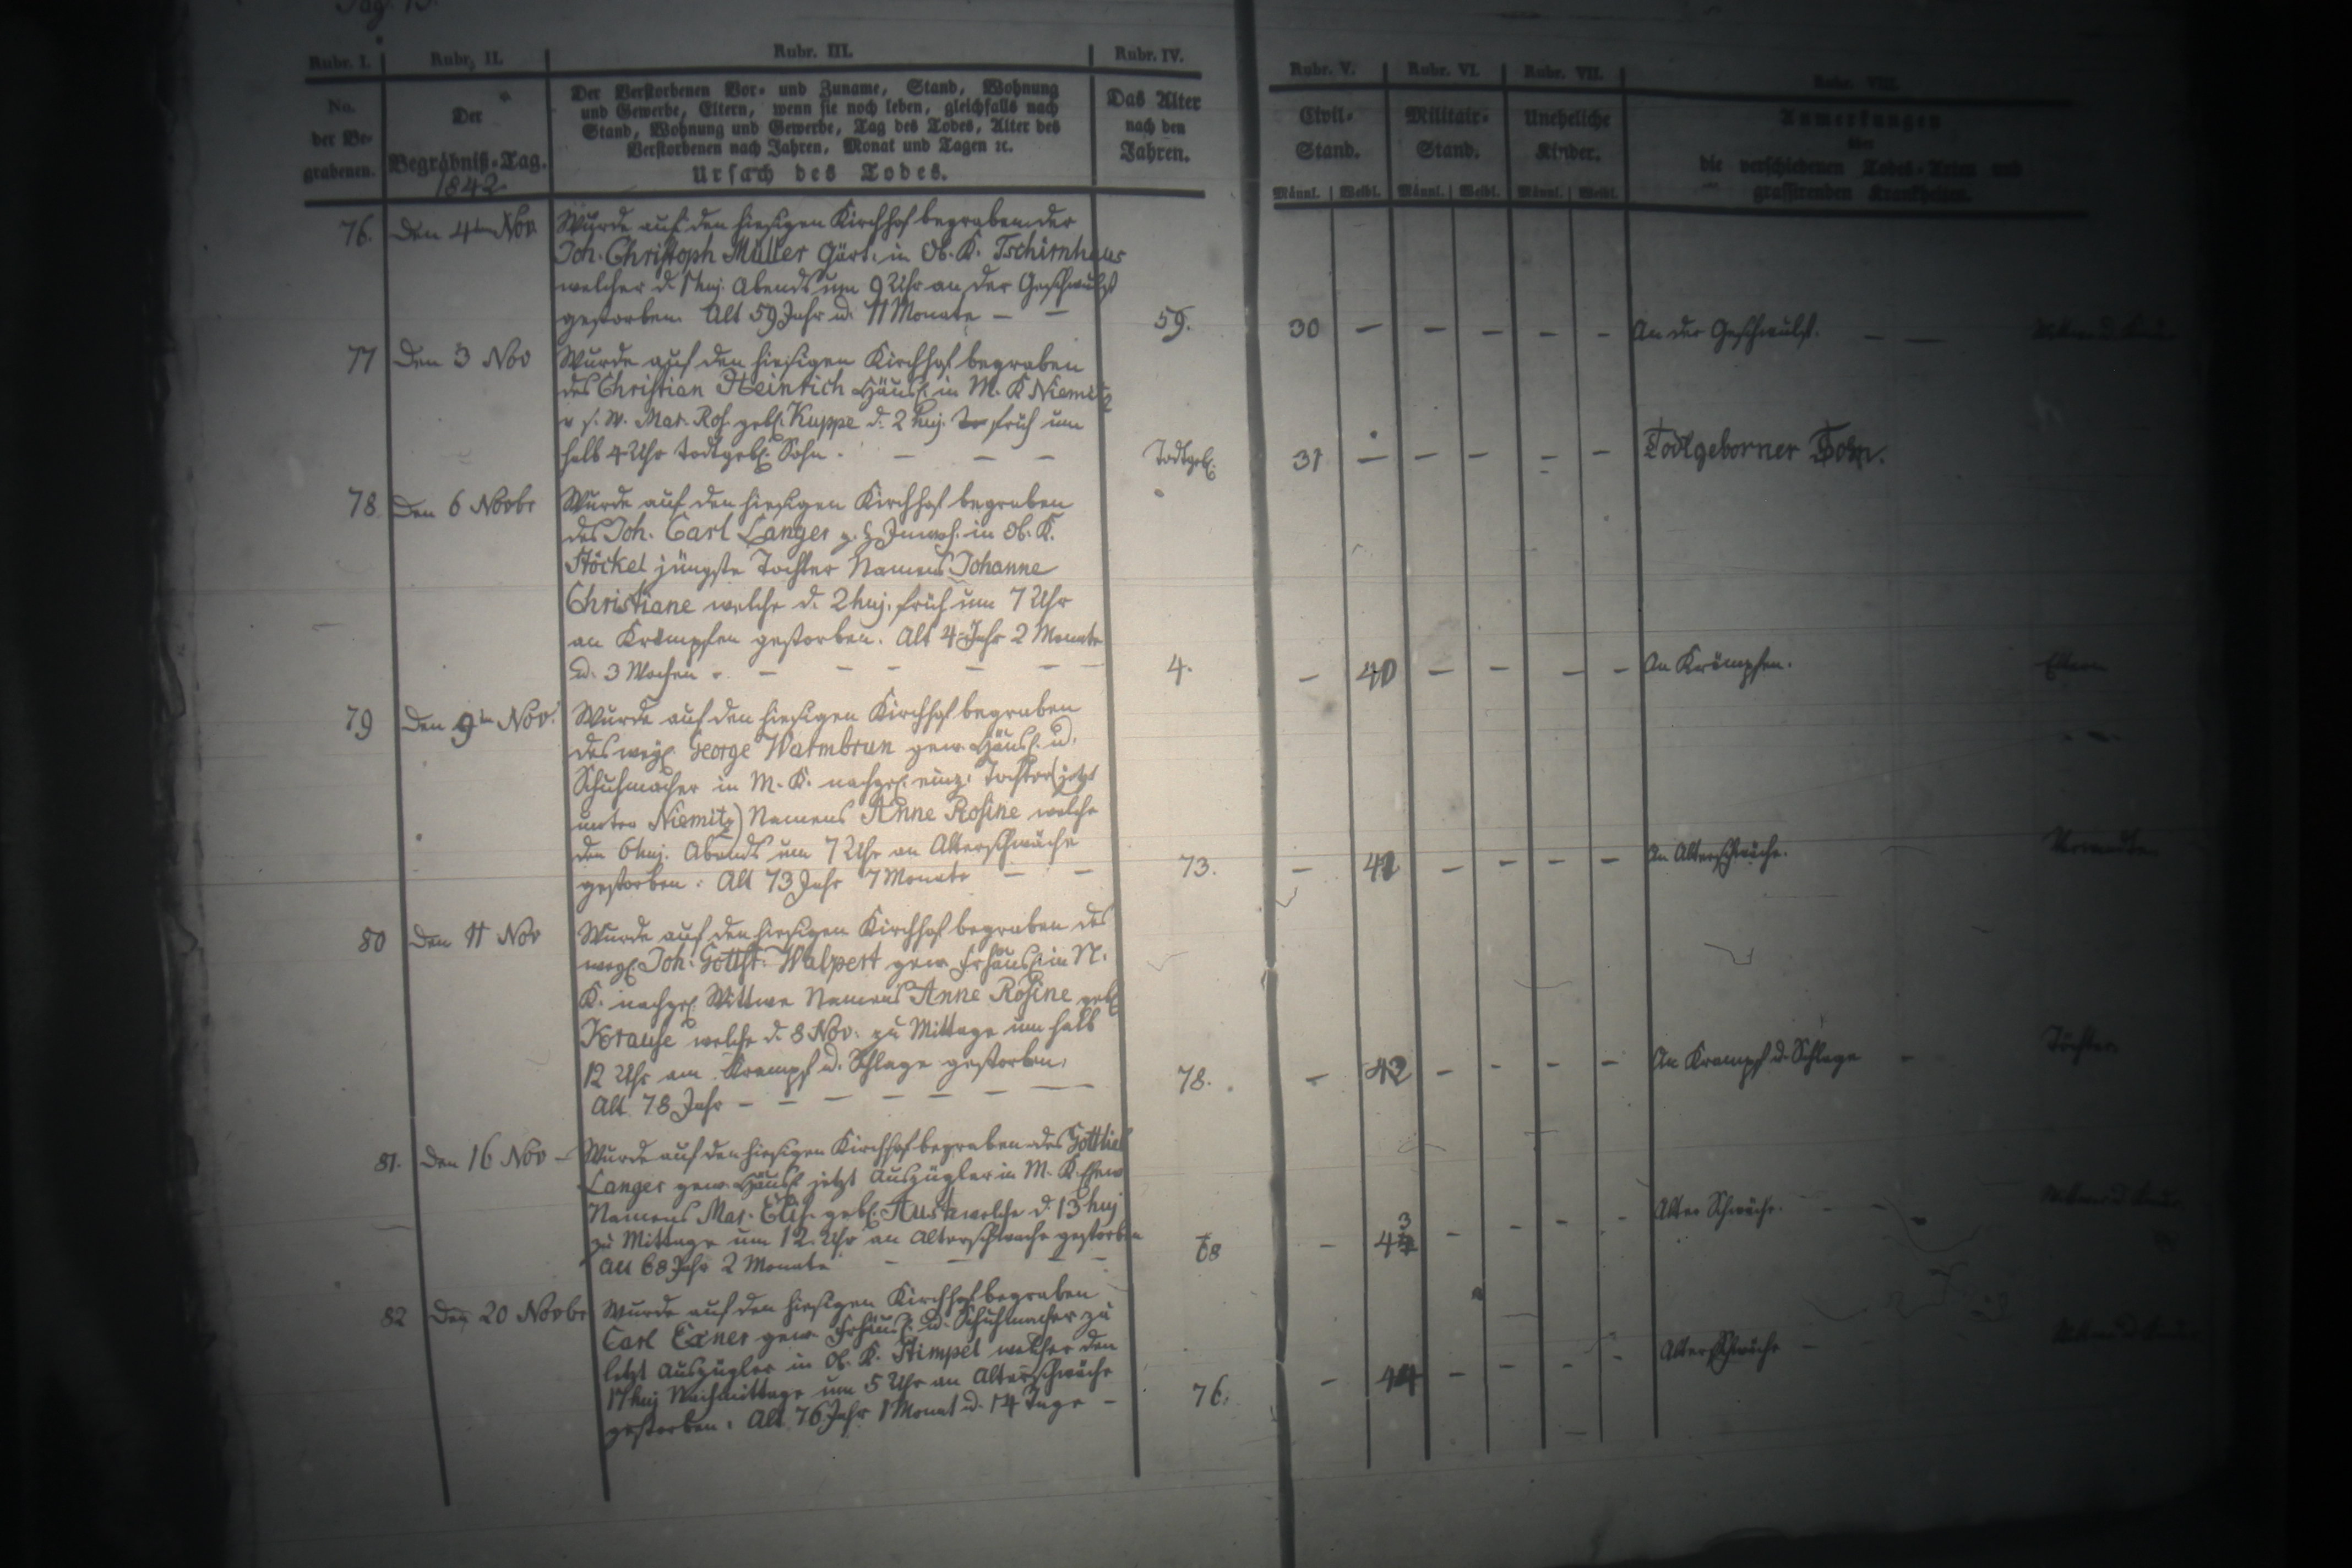 Pag. 15.
Rubr. I.
Rubr. II.
Rubr. III.
Rubr. IV.
Rubr. V.
Rubr. VI.
Rubr. VII.
Rubr. VIII.
No. der Be-grabenen.
Der Begräbniß-Tag.
1842
Der Verstorbenen Vor- und Zuname, Stand, Wohnung
und Gewerbe, Eltern, wenn sie noch leben, gleichfalls nach
Stand, Wohnung und Gewerbe, Tag des Todes, Alter des
Verstorbenen nach Jahren, Monat und Tagen ꝛc.
Ursach des Todes.
Das Alter nach den Jahren.
Civil-Stand.
Militair-Stand.
Uneheliche Kinder.
Anmerkungen
über
die verschiedenen Todes-Arten und
grassirenden Krankheiten.
Männl. Weibl. Männl. Weibl. Männl. Weibl.
76. Den 4ten Nov. Wurde auf den hiesigen Kirchhof begraben der
Joh. Christoph Müller Gärt. in Ob. K. Tschirnhaus
welcher d. 1 huj. Abends um 9 Uhr an der Geschwulst
gestorben. Alt 59 Jahr u. 11 Monate — —
59. 30 — — — — — An der Geschwulst. — —
77 Den 3 Nov Wurde auf den hiesigen Kirchhof begraben
des Christian Heinrich Häusl. in M. K Niemitz
u s. W. Mar. Ros. gebl. Kuppe d. 2 huj. früh um
halb 4 Uhr todtgeb. Sohn. — — —
Todtgeb. 31 — — — — — Todtgeborner Sohn.
78 Den 6 Novbr Wurde auf den hiesigen Kirchhof begraben
des Joh. Carl Langer Inwoh. in Ob. K.
Stöckel jüngste Tochter Namens Johanne
Christiane welche d. 2 huj. früh um 7 Uhr
an Krämpfen gestorben. Alt 4 Jahr 2 Monate
u. 3 Wochen. — — — — —
4. — 40 — — — — An Krämpfen. Eltern
79 Den 9ten Nov. Wurde auf den hiesigen Kirchhof begraben
des weyl. George Warmbrun gew. Häusl. u.
Schuhmacher in M. K. nachgel. einz. Tochter (jetzt
unter Niemitz) Namens Anne Rosine welche
den 6 huj. Abends um 7 Uhr an Altersschwäche
gestorben. Alt 73 Jahr 7 Monate — —
73. — 41 — — — — An Altersschwäche.
80 Den 11 Nov Wurde auf den hiesigen Kirchhof begraben des
weyl. Joh. Gottfr. Walpert gew. Frhäusl. in N.
K. nachgel. Wittwe Namens Anne Rosine gebl.
Krause welche d. 8 Nov. zu Mittage um halb
12 Uhr am Krampf u. Schlage gestorben.
Alt 78 Jahr — — — — — — —
78. — 42 — — — — An Krampf u. Schlage — Töchter
81. Den 16 Nov — Wurde auf den hiesigen Kirchhof begraben des Gottlieb
Langer gew. Häusl. jetzt Auszügler in M. K. Ehew.
Namens Mar. Elis. gebl. Aust welche d. 13 huj
zu Mittage um 12 Uhr an Altersschwäche gestorben
Alt 68 Jahr 2 Monate — — — —
68 — 43 — — — — Alters Schwäche. — —
82 Den 20 Novbr Wurde auf den hiesigen Kirchhof begraben
Carl Exner gew. Frhäusl. u. Schuhmacher zu
letzt Auszügler in Ob. K. Stimpel welcher den
17 huj Nachmittage um 5 Uhr an Altersschwäche
gestorben. Alt 76 Jahr 1 Monat u. 14 Tage —
76. — 44 — — — — Altersschwäche —